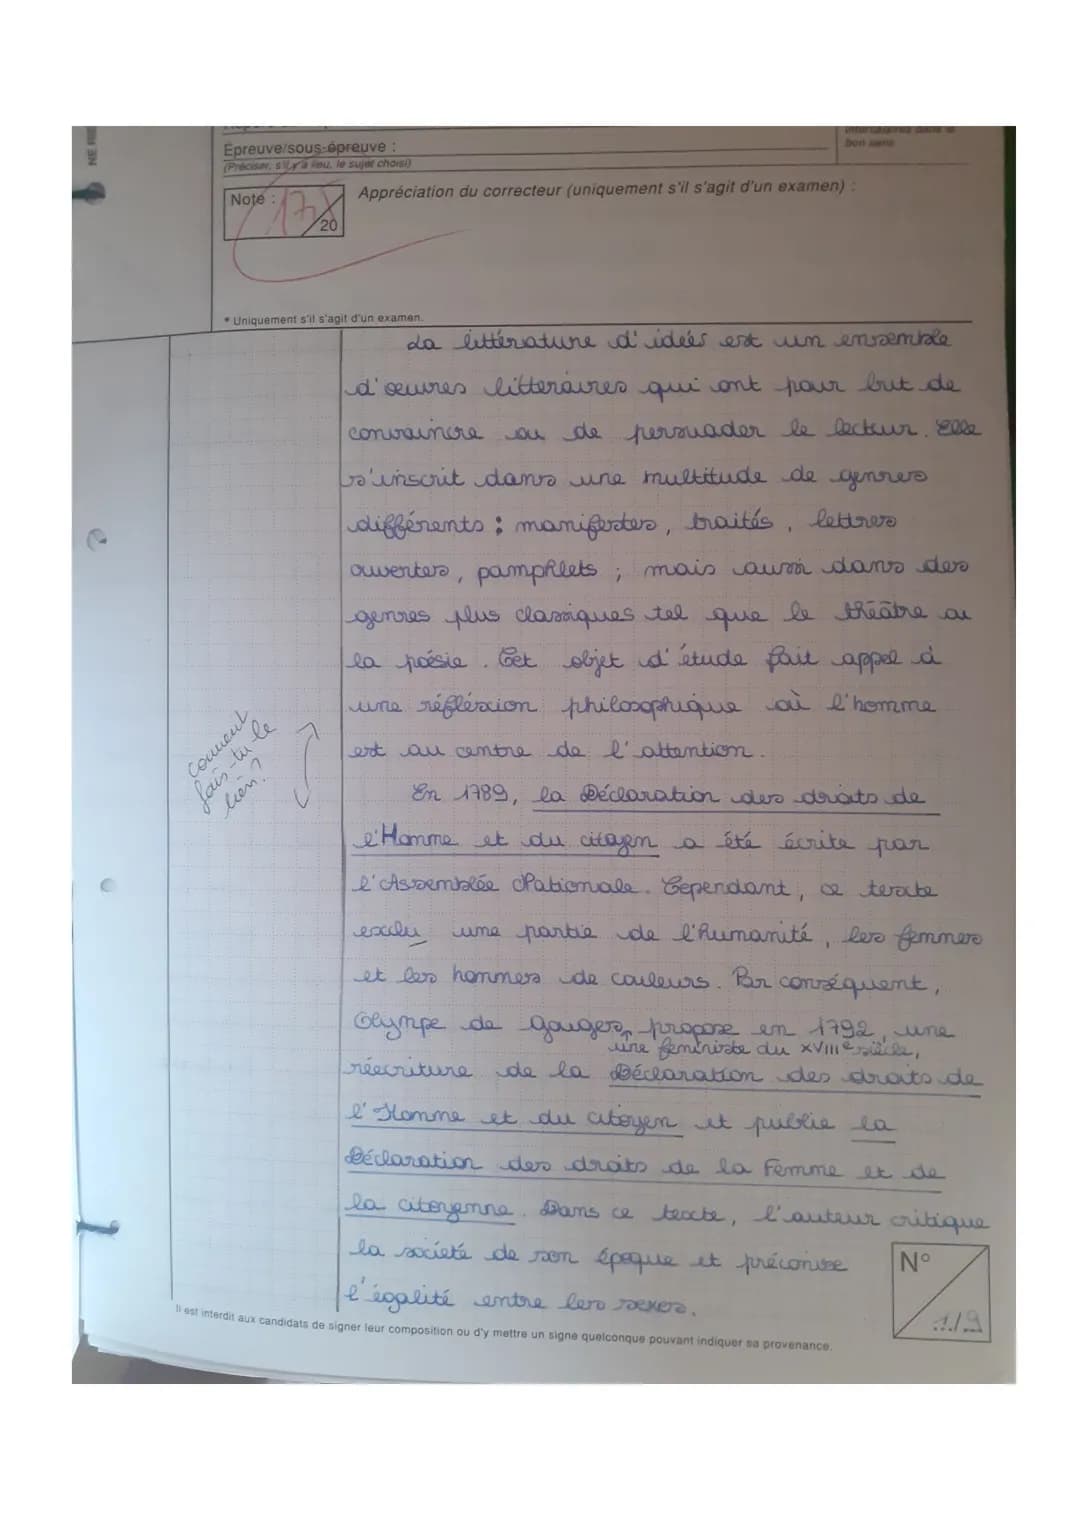 NE RE
Epreuve/sous-épreuve :
(Préciser, s'il y a lieu, le sujet choisi)
intercalaires dans le
bon sens
Note :
17
20
Appréciation du correcteur (uniquement s'il s'agit d'un examen) :
* Uniquement s'il s'agit d'un examen.
La littérature d'idées est un ensemble
d'œuvres litteraires qui ont pour but de
convaincre ou de persuader le lecteur. Elle
s'inscrit dans une multitude de genres
différents : manifestes, traités, lettres
ouvertes, pamphlets ; mais aussi dans des
genres plus classiques tel que le théâtre ou
la poésie. Cet objet d'étude fait appel à
une réfléxion philosophique où l'homme
est au centre de l'attention.
comment
fais-tu le
lien ?
En 1789, la Déclaration des droits de
l'Homme et du citoyen a été écrite par
l'Assemblée Nationale. Cependant, ce texte
exclu une partie de l'humanité, les femmes
et les hommes de couleurs. Par conséquent,
Olympe de Gouges, propose en 1792, une
une féministe du XVIIIe siècle,
réécriture de la Déclaration des droits de
l'Homme et du citoyen et publie la
Déclaration des droits de la Femme et de
la citoyenne. Dans ce texte, l'auteur critique
la société de son époque et préconise
l'égalité entre les sexes.
N°
1/9
Il est interdit aux candidats de signer leur composition ou d'y mettre un signe quelconque pouvant indiquer sa provenance.